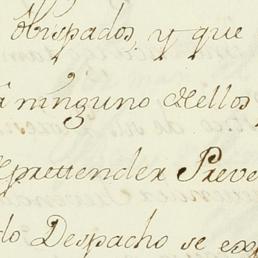 obispados, y que
â ninguno dellos
prettender Preve
do Despacho se ex